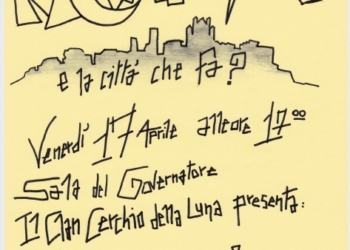 e la città che fa?
Venerdì 17 Aprile alleore 17°°
Sala del Governatore
Il Clan Cerchio della Luna presenta: